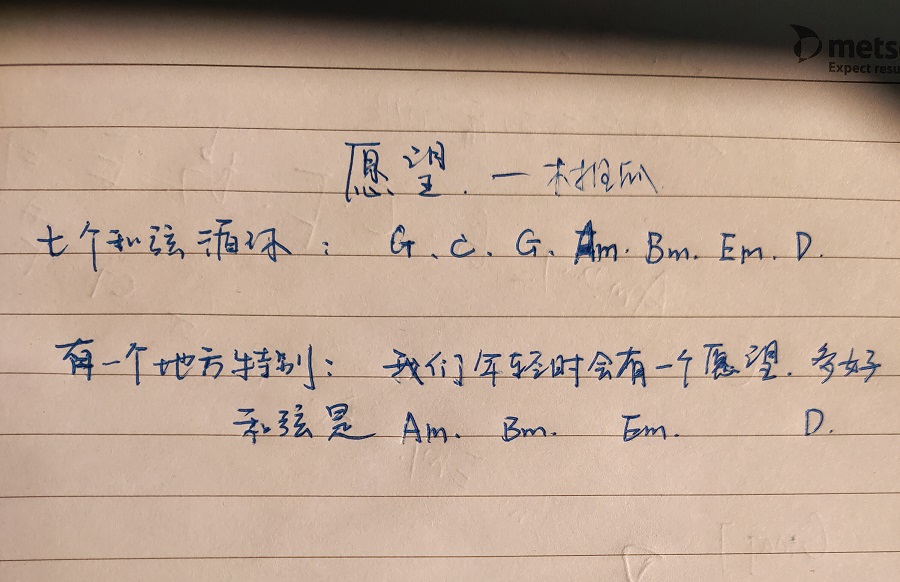 metso
Expect resu
愿望.一木推瓜
七个和弦循环: G、C、G、Am. Bm. Em. D.
有一个地方特别: 我们年轻时会有一个愿望.多好
和弦是 Am. Bm. Em. D.